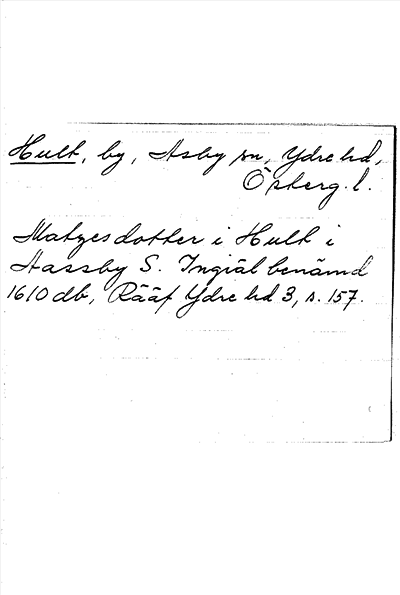 Hult, by, Asby sn, Ydre hd,
Österg. l.
Matzesdotter i Hult i
Aassby S. Ingiäl benämd
1610 db, Rääf Ydre hd 3, s. 157.